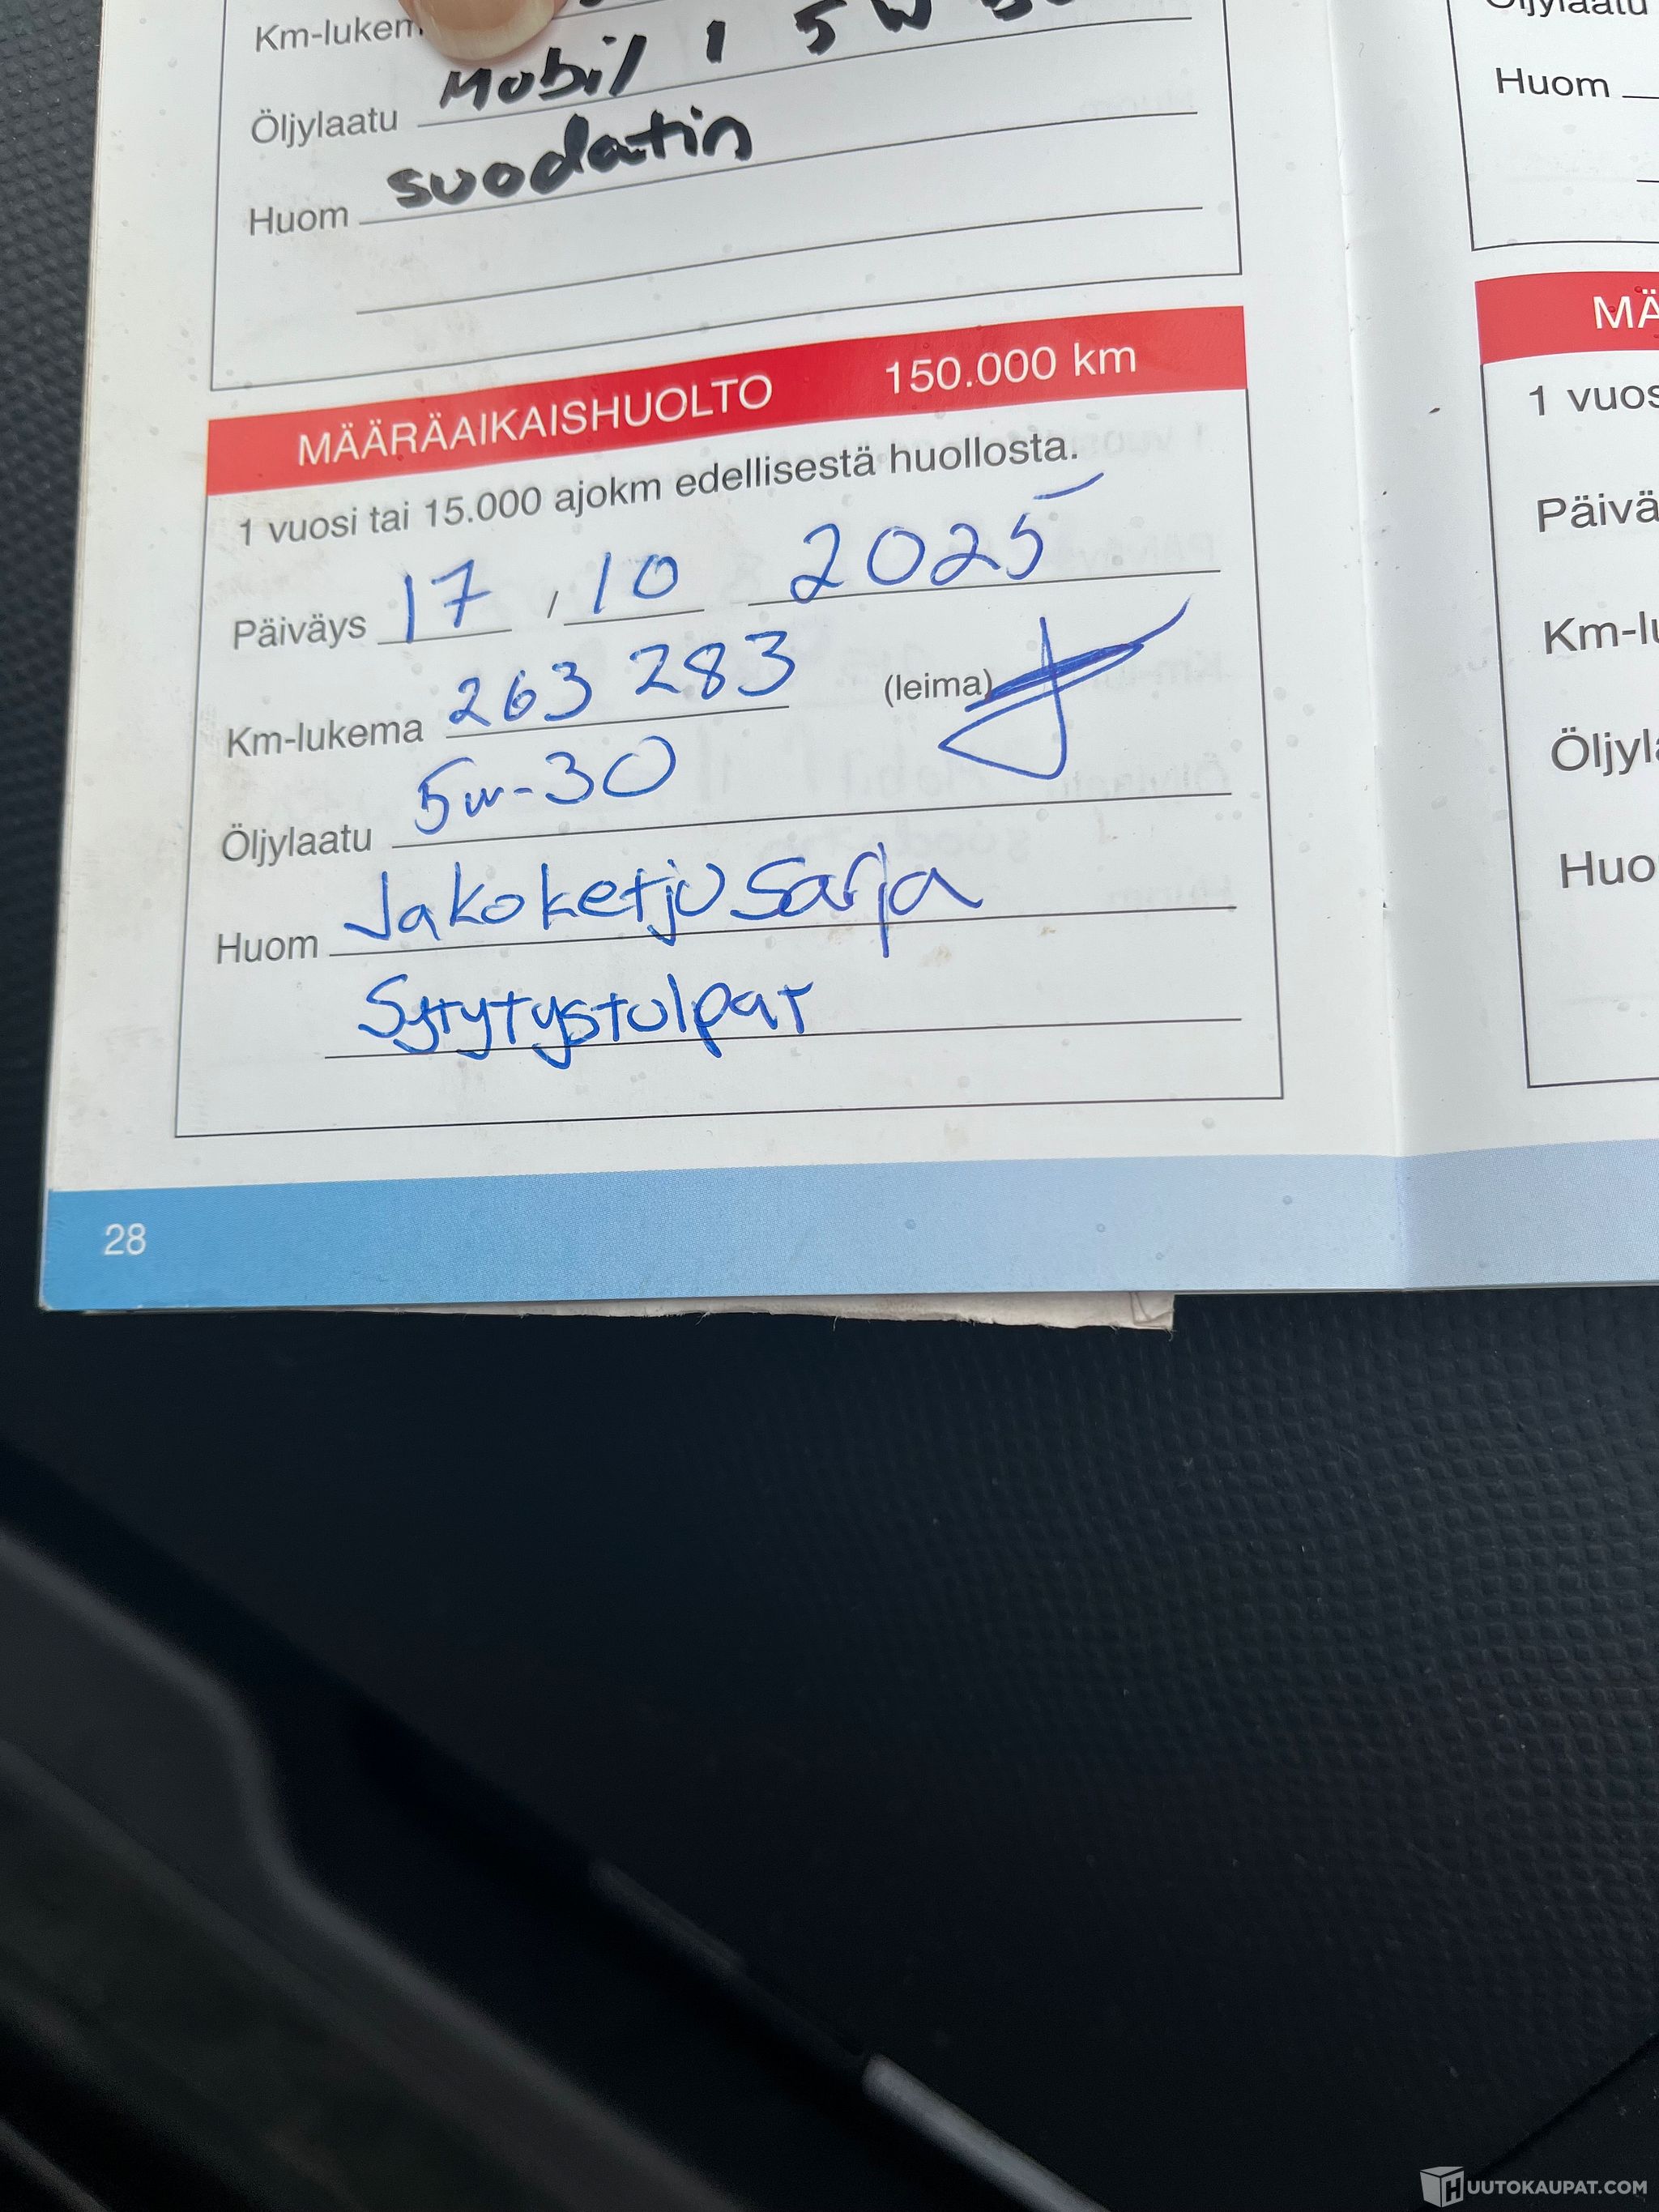 Km-lukem
Öljylaatu Mobil 1 5W
Huom suodatin
MÄÄRÄAIKAISHUOLTO 150.000 km
1 vuosi tai 15.000 ajokm edellisestä huollosta.
Päiväys 17 , 10 2025
Km-lukema 263 283 (leima)
Öljylaatu 5w-30
Huom Jakoketju sarja
Sytytystulpat
28
Öljylaatu
Huom
MÄ
1 vuos
Päivä
Km-lu
Öljyla
Huo
HUUTOKAUPAT.COM